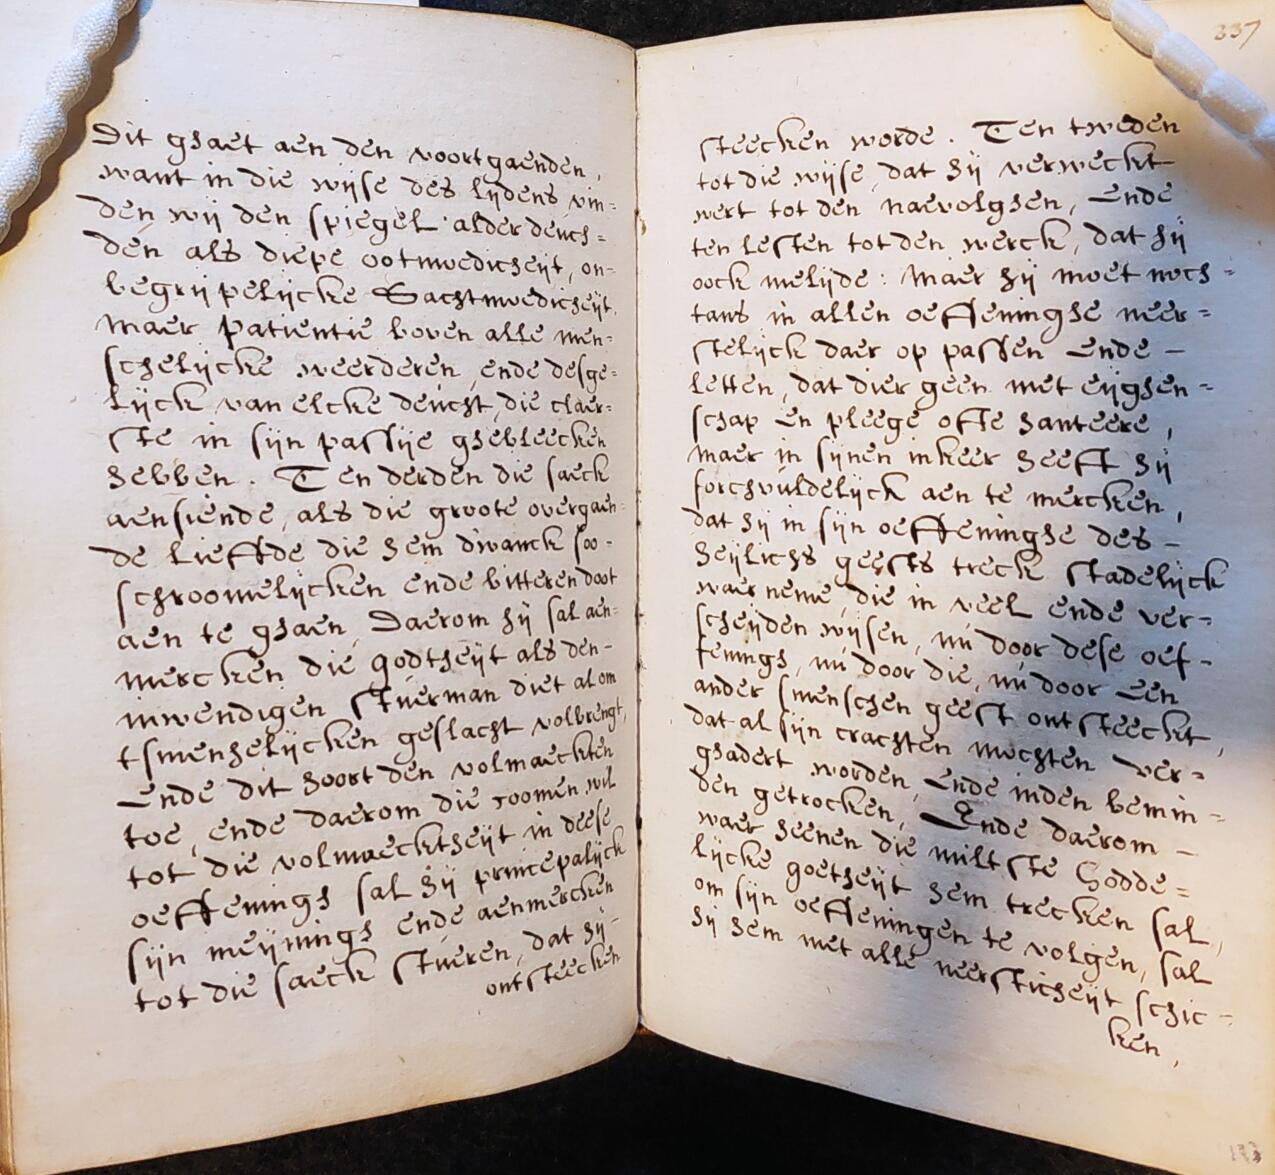 Dit ghaet aen den voortgaenden,
want in die wijse des lijdens vin=
den wij den spiegel alder deuch=
den als diepe ootmoedicheijt, on-
begrijpelijcke Sachtmoedicheijt,
maer patientie boven alle men-
schelijcke weerderen, ende desge=
lijck van elcke deucht, die claer=
ste in sijn passije ghebleecken
hebben. Ten derden die saeck
aensiende, als die groote overgaen=
de lieffde die hem dwanck soo-
schroomelijcken ende bitteren doot
aen te ghaen, Daerom hij sal aen=
mercken die godtheijt als den-
inwendigen stuerman diet al om
tsmenschelijcken geslacht volbrengt,
Ende dit hoort den volmaeckten
toe, ende daerom die roomen wil
tot die volmaecktheijt in deese
oeffeningh sal hij princepalijck
sijn meijningh ende aenmercken
tot die saeck stueren, dat hij-
ontsteecken
337
steecken worde. Ten tweden
tot die wijse, dat hij verweckt
wert tot den naevolghen, Ende
ten lesten tot den werck, dat hij
oock melijde: Maer hij moet noch=
tans in allen oeffeninghe neer=
stelijck daer op passen Ende-
letten, dat dier geen met eijghen=
schap en pleege ofte hanteere,
maer in sijnen inkeer heeft hij
sorchvuldelijck aen te mercken,
dat hij in sijn oeffeninghe des-
heijlichs geests treck stadelijck
waerneme, die in veel ende ver=
scheijden wijsen, nu door dese oef-
fenings, nu door die, nu door een
ander smenschen geest ontsteeckt,
dat al sijn crachten mochten ver=
ghadert worden, Ende inden bemin=
den getrocken, Ende daerom-
waer heenen die miltste Godde=
lijcke goetheijt hem trecken sal,
om sijn oeffeningen te volgen, sal
hij hem met alle neersticheijt schic-
ken,